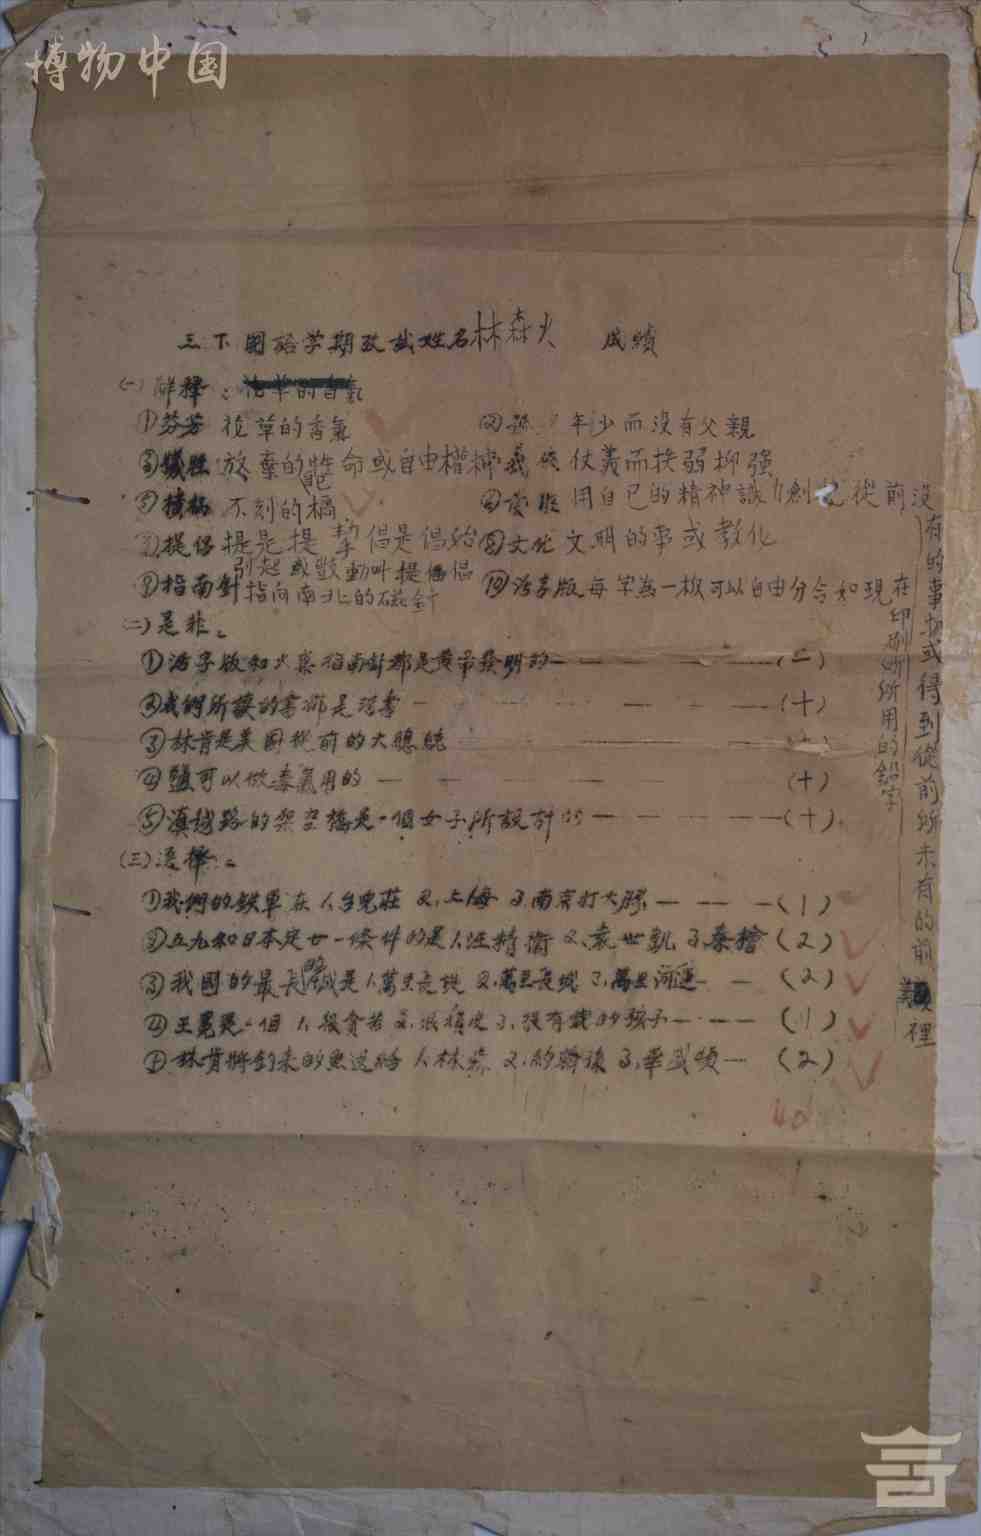 博物中国
三下國語学期攷試姓名林森火 成績
(一)解釋:花草的香氣
①芬芳 花草的香氣 ②孤 年少而沒有父親
③犧牲 放棄的 命或自由權 ④義俠 仗義而扶弱抑強
⑤ 不刻的橋 ⑥發明 用自己的精神識力創 從前沒
有的事物或得到從前所未有的前 裡
⑦提倡 提是提 挈 倡是倡始 ⑧文化 文明的事或教化
引起或鼓動叫提倡
⑨指南針 指向南北的磁針 ⑩活字版 每字為一板可以自由分合如現在
印刷所所用的鉛字
(二)是非:
①活字版和火藥指南針都是黃帝發明的 (一)
②我們所讀的書都是活書 (十)
③林肯是美國從前的大總統
④鹽可以做毒氣用的 (十)
⑤滇越路的架空橋是一個女子所設計的 (十)
(三)選擇:
①我們的鉄軍在 1、台兒莊 2、上海 3、南京打大勝 (1)
②五九和日本定廿一條件的是 1、汪精衛 2、袁世凱 3、秦檜 (2)
③我國的最長 城是 1、萬里長堤 2、萬里長城 3、萬里河運 (2)
④王冕是一個 1、很貧苦 2、很 3、没有 的孩子 (1)
⑤林肯將釣來的魚送給 1、林森 2、約翰孫 3、華盛頓 (2)
40